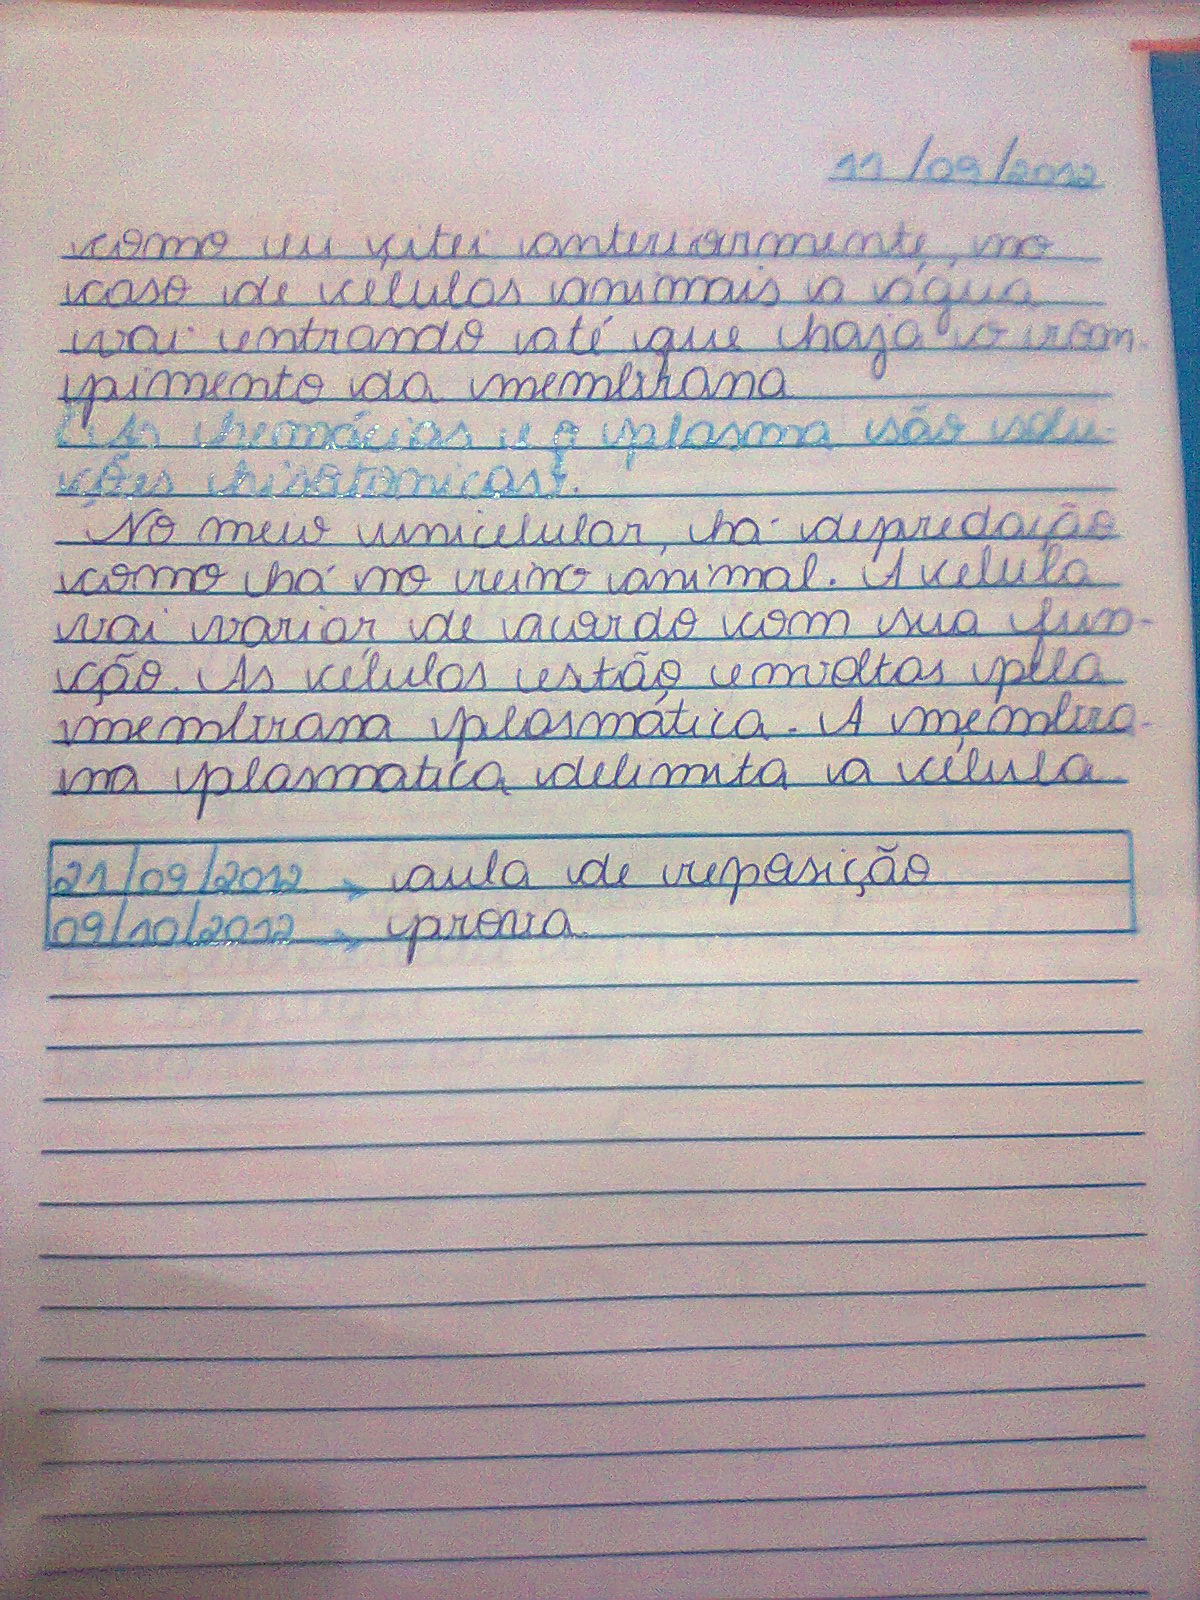 11/09/2012
como eu citei anteriormente, no
caso de células animais a água
vai entrando até que haja o rom-
pimento da membrana
As hemácias e o plasma são solu-
ções hisotonicas.
No meio unicelular, há depredação
como há no reino animal. A célula
vai variar de acordo com sua fun-
ção. As células estão envoltas pela
membrana plasmática. A membra-
na plasmatica delimita a célula
21/09/2012 → aula de reposição
09/10/2012 → prova